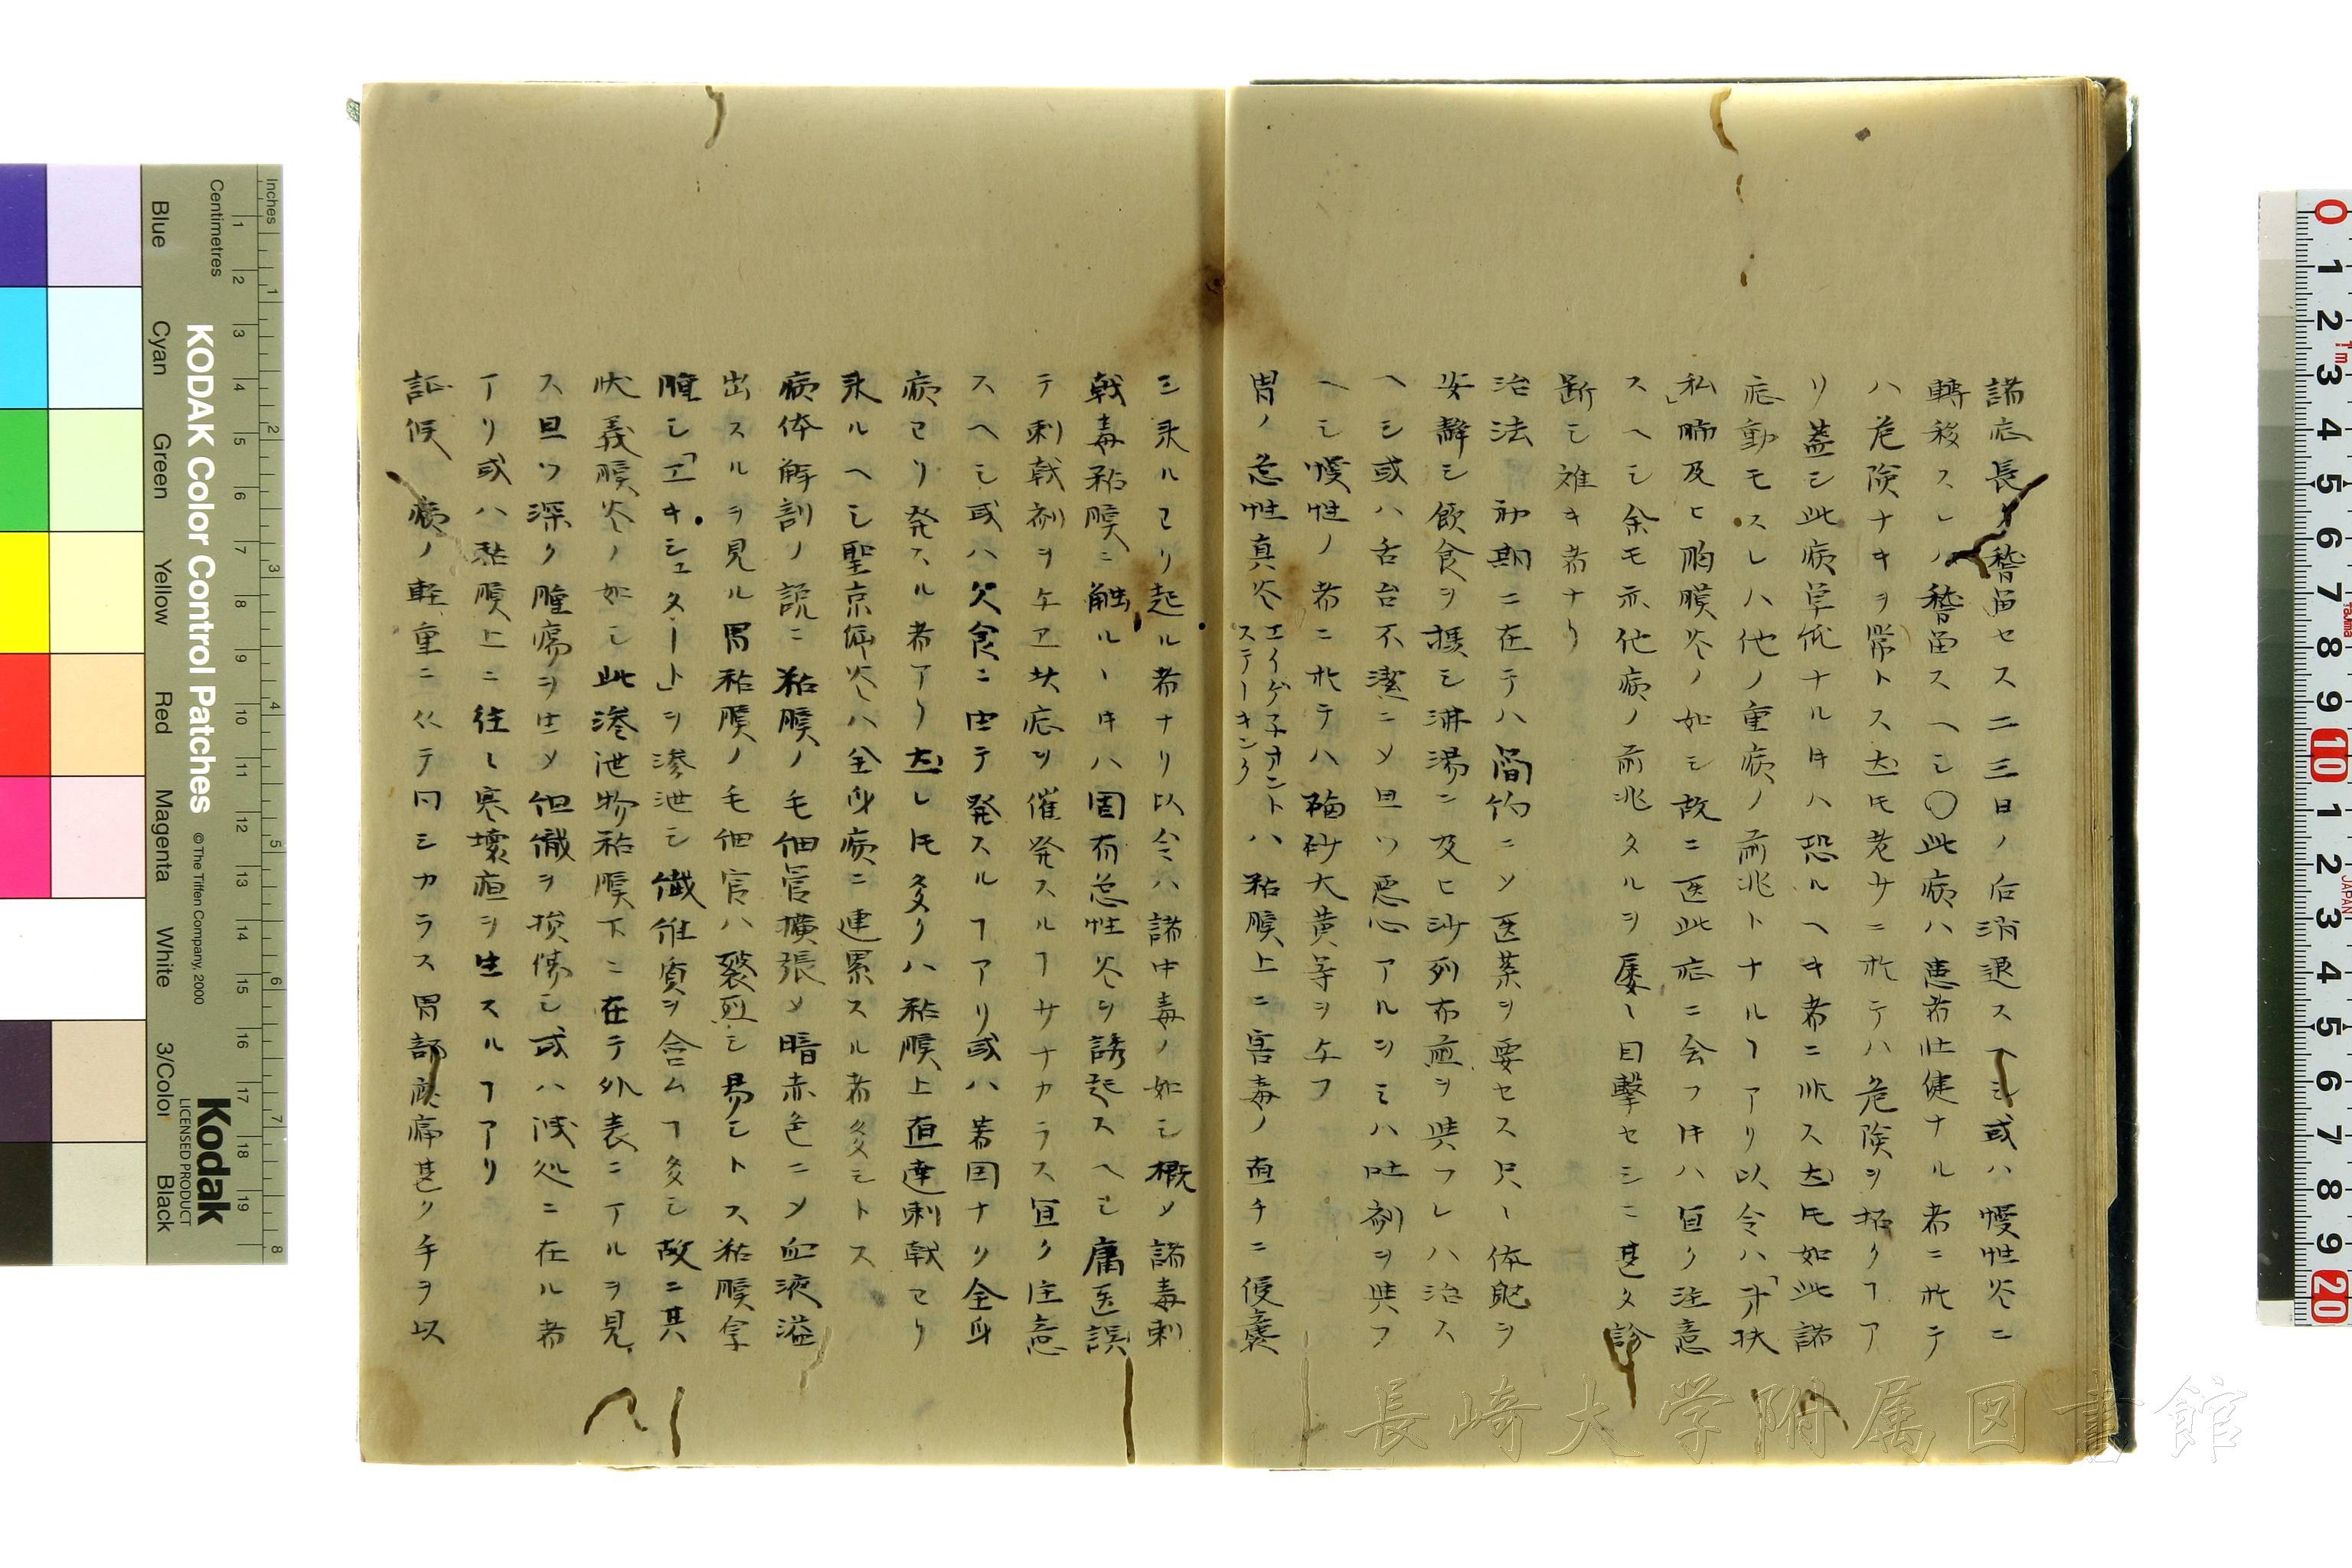 諸症長ク稽留セス二三日ノ后消退スヘシ或ハ慢性炎ニ
轉移スレハ稽留スヘシ〇此病ハ患者壮健ナル者ニ於テ
ハ危険ナキヲ常トス𪜈老サニ於テハ危険ヲ招クヿア
リ蓋シ此病単純ナルキハ恐ルヘキ者ニ非ス𪜈如此諸
症動モスレハ他ノ重病ノ前兆トナルヿアリ以令ハ「チフ扶
私」肺及ヒ胸膜炎ノ如シ故ニ医此症ニ会フ时ハ宜ク注意
スヘシ余モ亦他病ノ前兆タルヲ屡〻目撃セシニ甚タ診
断シ难キ者ナリ
治法 初期ニ在テハ簡約ニメ医薬ヲ要セス只〻体軀ヲ
安静シ飲食ヲ摂シ沸湯ニ及ヒ沙列布亟ヲ與フレハ治ス
ヘシ或ハ舌苔不潔ニメ且ツ悪心アルヿシハ吐剤ヲ與フ
ヘシ慢性ノ者ニ於テハ硇砂大黄等ヲ与フ
胃ノ急性真炎 エイゲ子オントステーキンク ハ粘膜上ニ害毒ノ直チニ侵襲
シ来ルヨリ起ル者ナリ以令ハ諸中毒ノ如シ概メ諸毒刺
戟毒粘膜ニ触ル丶时ハ固有急性炎ヲ誘起スヘシ庸医誤
テ刺戟剤ヲ与ヱ此症ヲ催発スルヿサナカラス宜ク注意
スヘシ或ハ欠食ニ由テ発スルヿアリ或ハ若因ナク全身
病ヨリ発スル者アリ𪜈レ𪜈多クハ粘膜上直達刺戟ヨリ
来ルヘシ聖京偏炎ハ全身病ニ連累スル者多シトス
病体解剖ノ説ニ粘膜ノ毛細管擴張メ暗赤色ニメ血液溢
出スルヲ見ル胃粘膜ノ毛細官ハ裂烈シ易シトス粘膜全
腫シ「エキシュタート」ヲ滲泄シ繊維質ヲ含ムヿ多シ故ニ其
状義膜炎ノ如シ此滲泄物粘膜下ニ在テ外表ニアルヲ見
ス且ツ深ク腫瘍ヲ生メ組織ヲ損傷シ或ハ浅処ニ在ル者
アリ或ハ粘膜上ニ往〻寒壊疽ヲ生スルヿアリ
証候 病ノ軽重ニ仫テ同シカラス胃部疼痛甚ク手ヲ以
長崎大学附属図書館
KODAK Color Control Patches
© The Tiffen Company, 2000
Kodak
LICENSED PRODUCT
Inches
Centimetres
Blue
Cyan
Green
Yellow
Red
Magenta
White
3/Color
Black